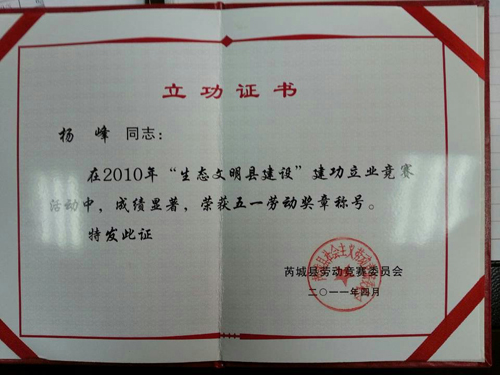 立功证书
杨峰 同志：
在2010年“生态文明县建设”建功立业竞赛
活动中，成绩显著，荣获五一劳动奖章称号。
特发此证
芮城县劳动竞赛委员会
二〇一一年四月